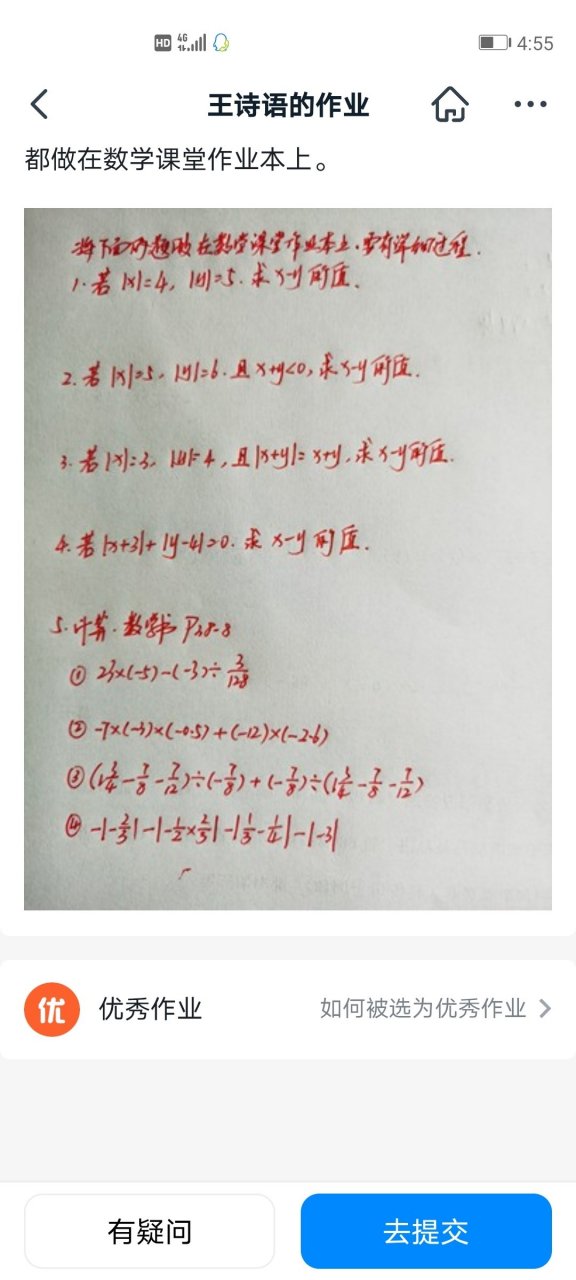 HD 4G 4:55
王诗语的作业
都做在数学课堂作业本上。
将下面的题做在数学课堂作业本上.要有详细过程.
1.若|x|=4, |y|=5.求x-y的值.
2.若|x|=5, |y|=6.且x+y<0,求x-y的值.
3.若|x|=3, |y|=4,且|x+y|=x+y.求x-y的值.
4.若|x+3|+|y-4|=0.求x-y的值.
5.计算.数学书P38-8
① 23×(-5)-(-3)÷3/128
② -7×(-3)×(-0.5)+(-12)×(-2.6)
③ (1 3/4-7/8-7/12)÷(-7/8)+(-7/8)÷(1 3/4-7/8-7/12)
④ -|-2/3|-|-1/2×2/3|-|1/3-1/4|-|-3|
优 优秀作业 如何被选为优秀作业
有疑问 去提交